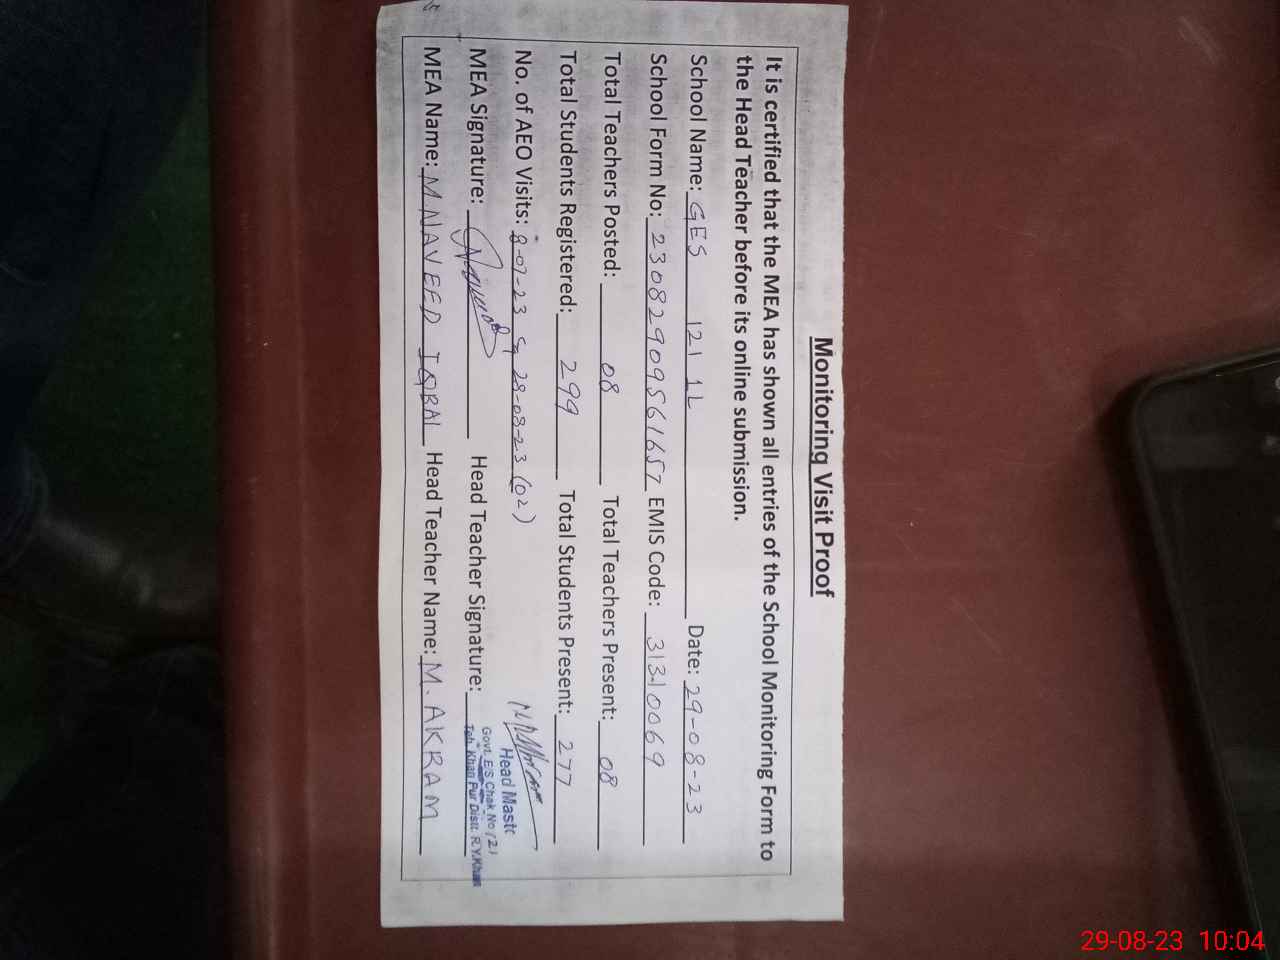 Monitoring Visit Proof
It is certified that the MEA has shown all entries of the School Monitoring Form to
the Head Teacher before its online submission.
School Name: GES 121 1L Date: 29-08-23
School Form No: 2308290956165 EMIS Code: 31310069
Total Teachers Posted: 08 Total Teachers Present: 08
Total Students Registered: 299 Total Students Present: 277
No. of AEO Visits: 8-07-23 28-08-23 (02)
MEA Signature: Head Teacher Signature:
Head Mast
Govt. E/S Chak No 121
Teh. Khan Pur Distt. R.Y.Khan
MEA Name: M NAVEED IQBAL Head Teacher Name: M. AKRAM
29-08-23 10:04